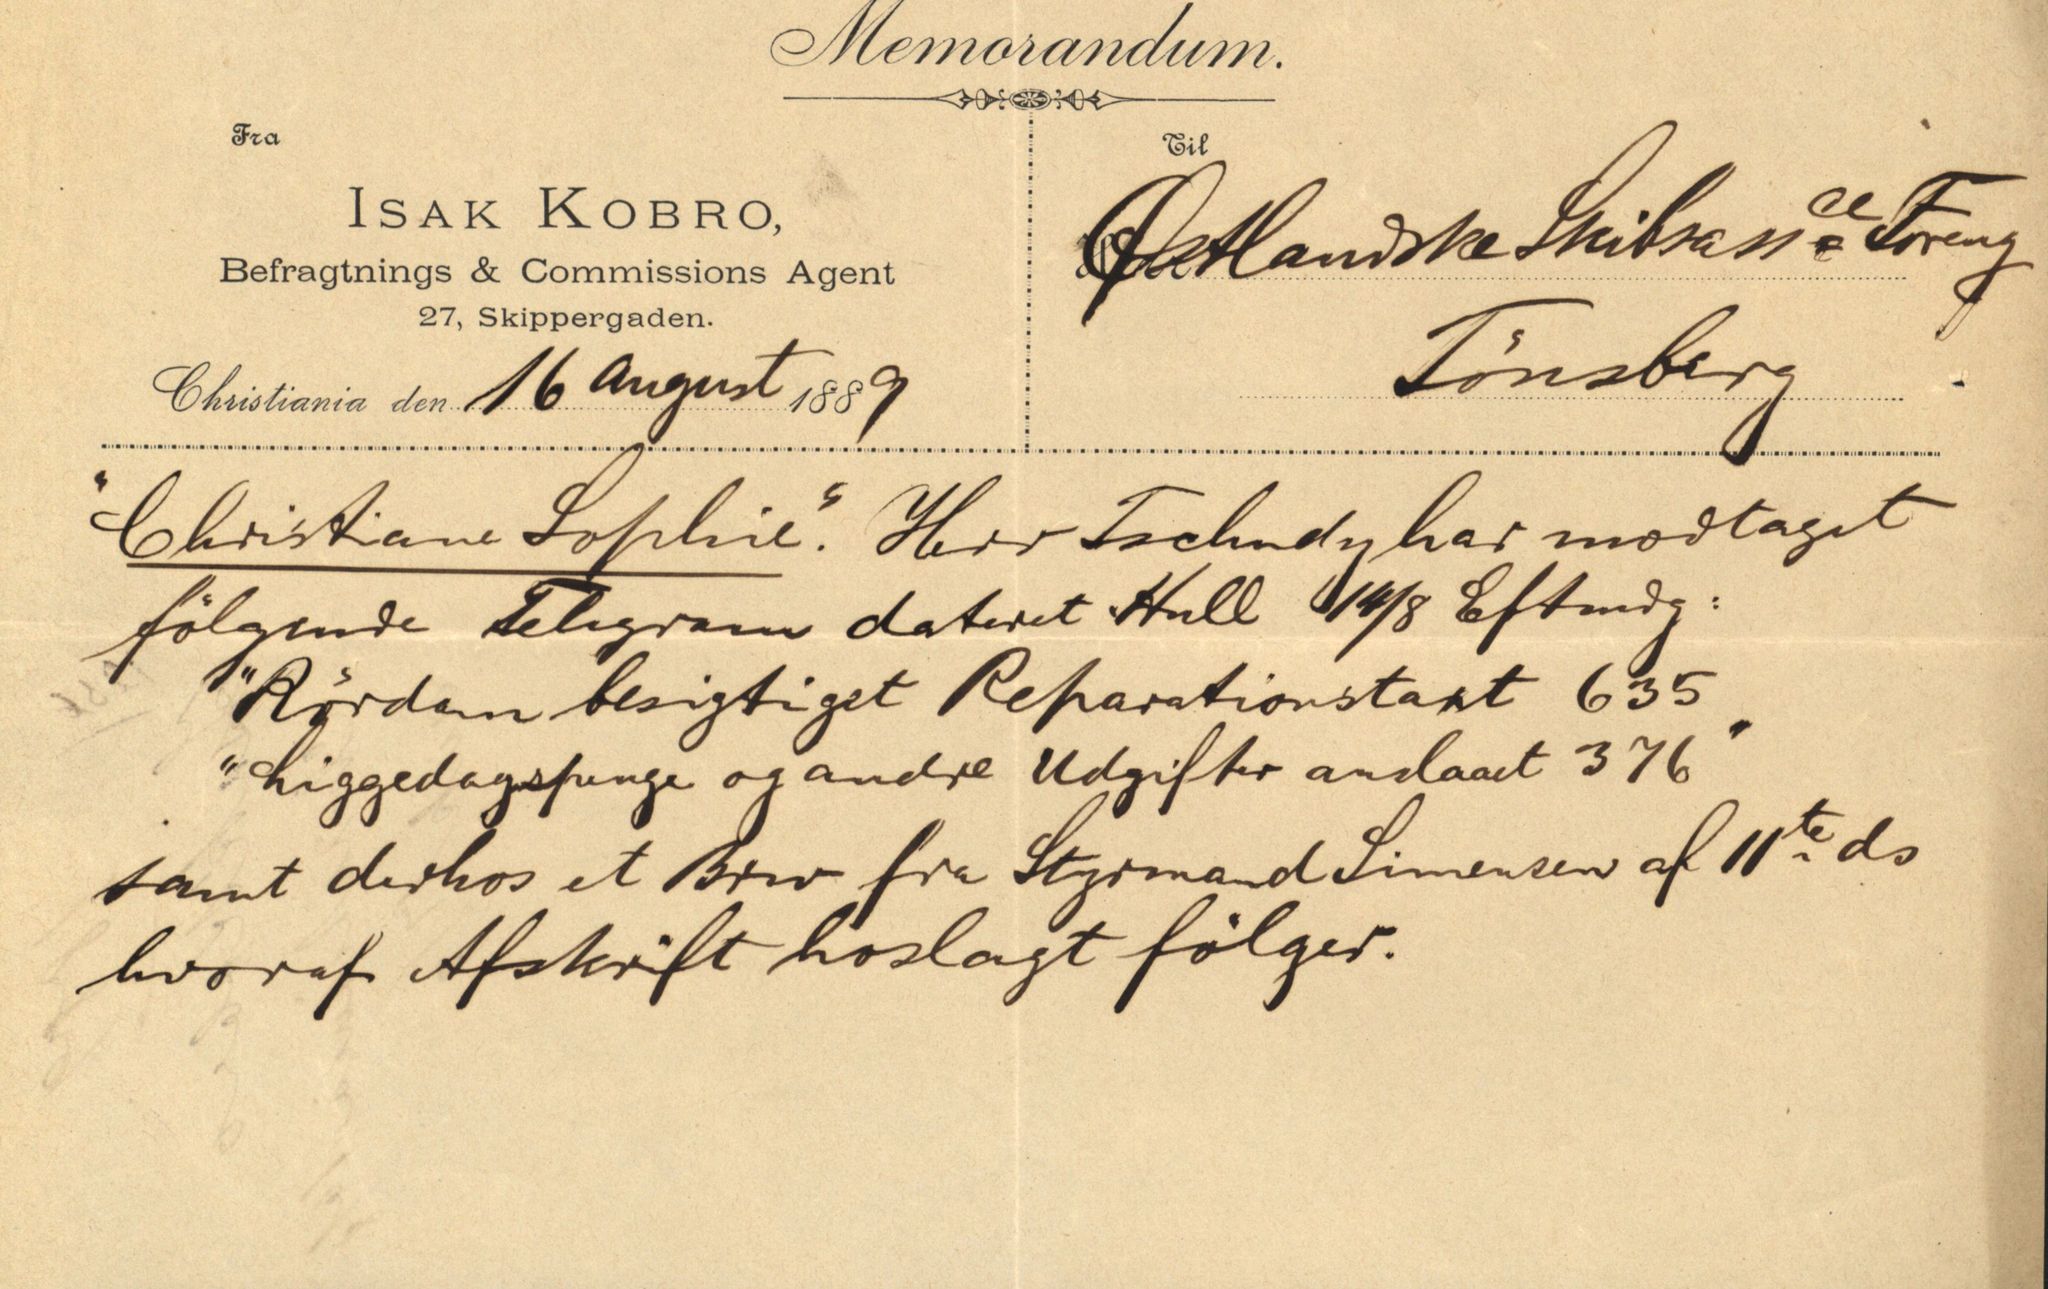 Memorandum.
Fra
Til
ISAK KOBRO,
Befragtnings & Commissions Agent
27, Skippergaden.
Christiania den 16 August 1889
Østlandske Skibsassce Foreng
Tönsberg
"Christiane Sophie". Herr Tschudy har modtaget
fölgende Telegram dateret Hull 14/8 Eftmdg:
"Rördam besigtiget Reparationstaxt 635
"Liggedagspenge og andre Udgifter anslaaet 376"
samt derhos et Brev fra Styrmand Simensen af 11te ds
hvoraf Afskrift hoslagt fölger.